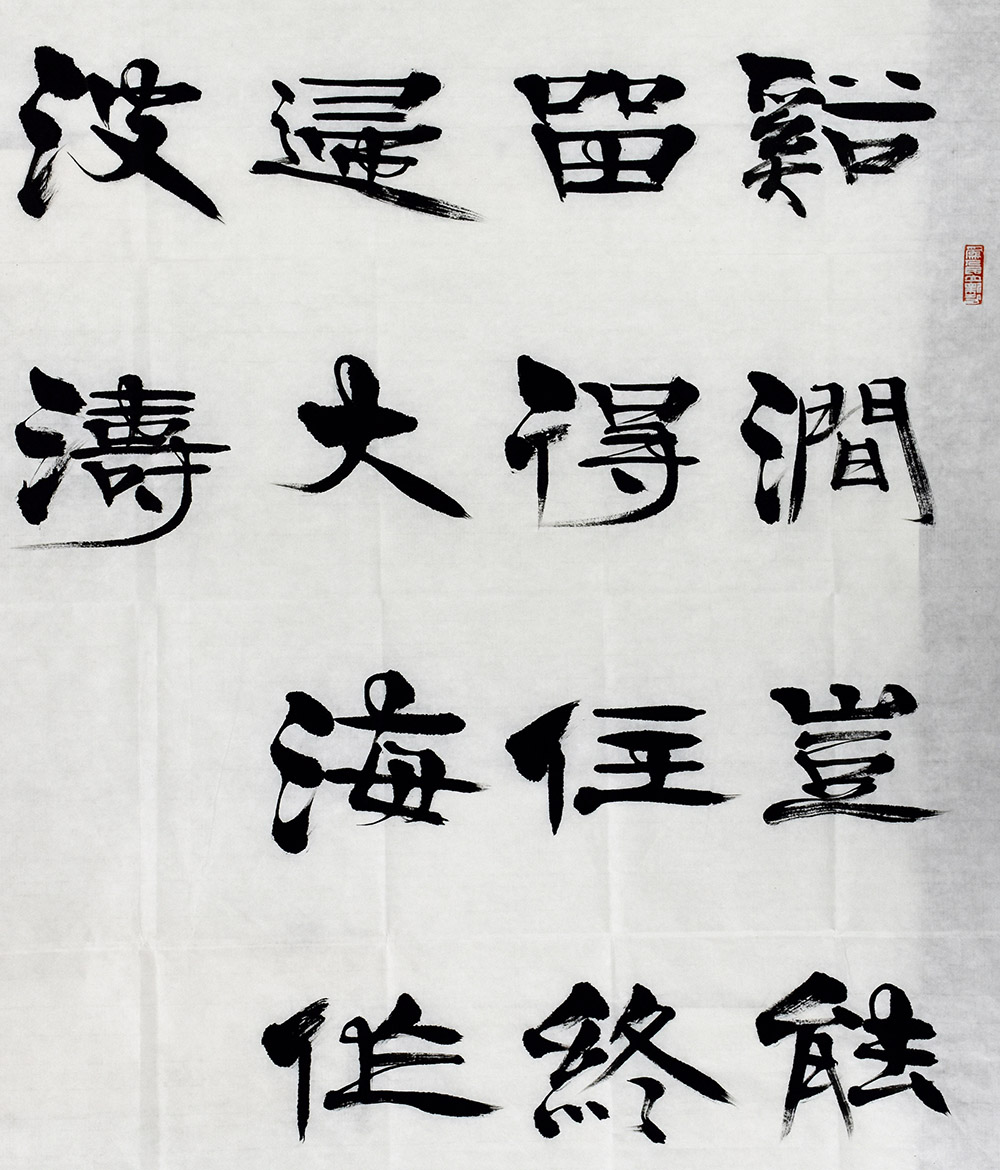 谿澗豈能
留得住終
歸大海作
波濤